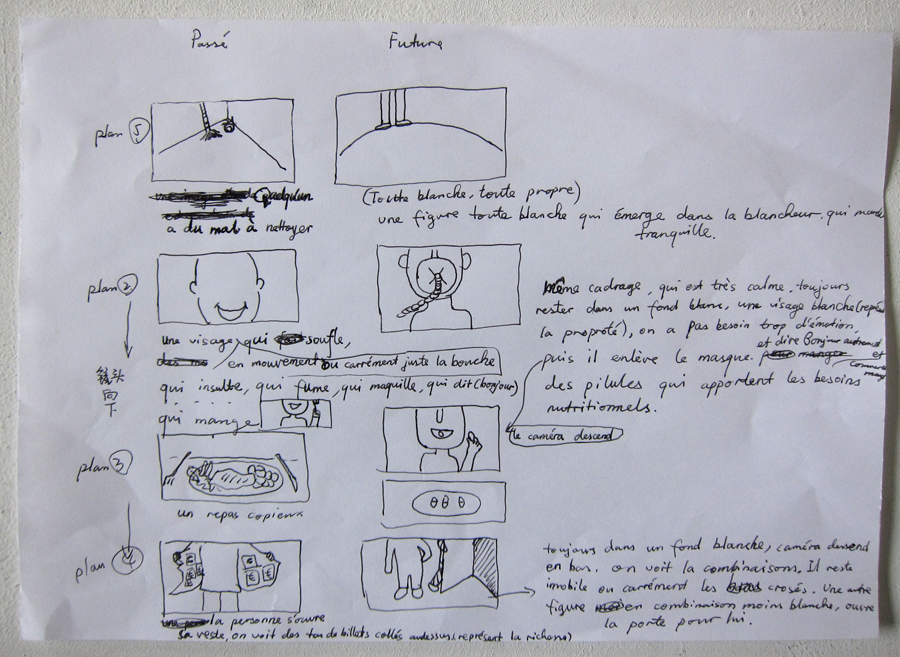 Passé
Future
plan 5
quelqu'un
a du mal à nettoyer
(Toute blanche, toute propre)
une figure toute blanche qui émerge dans la blancheur. qui marche
tranquille.
plan 2
镜头
向
下
une visage, qui soufle,
en mouvement ou carrément juste la bouche
qui insulte, qui fume, qui maquille, qui dit (bonjour)
qui mange
Même cadrage, qui est très calme. toujours
rester dans un fond blanc, une visage blanche (repré
la propreté), on a pas besoin trop d'émotion,
et dire Bonjour
puis il enlève le masque. et
des pilules qui apportent les besoins
nutritionnels.
le caméra descend
plan 3
un repas copieux
plan 4
la personne s'ouvre
sa veste, on voit des tas de billets collés audessus (représent la richesse)
toujours dans un fond blanche, caméra descend
en bas. on voit la combinaisons. Il reste
imobile ou carrément les bras crosés. Une autre
figure en combinaison moins blanche, ouvre
la porte pour lui.